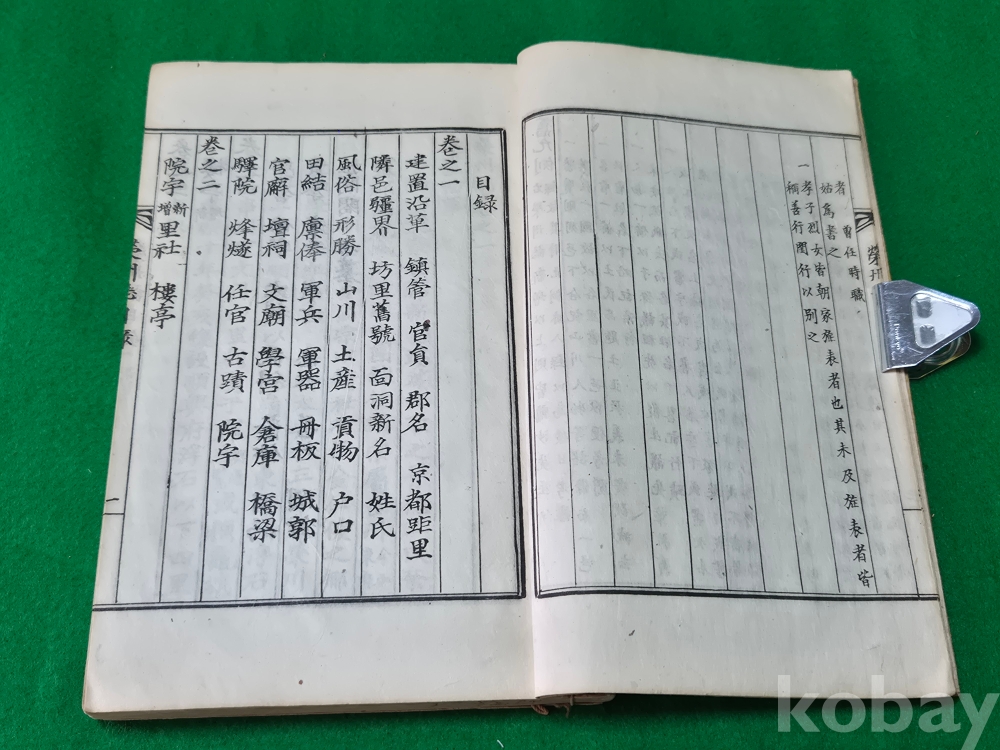 孝曾任時職
姑爲書之
一孝子烈女皆朝家旌表者也其未及旌表者皆
稱善行閨行以別之
目録
卷之一
建置沿革 鎮管 官員 郡名 京都距里
隣邑疆界 坊里舊號 面洞新名 姓氏
風俗 形勝 山川 土産 貢物 户口
田結 廩俸 軍兵 軍器 冊板 城郭
官廨 壇祠 文廟 學宮 倉庫 橋梁
驛院 烽燧 任官 古蹟 院宇
卷之二
院宇新增 里社 樓亭
一
kobay